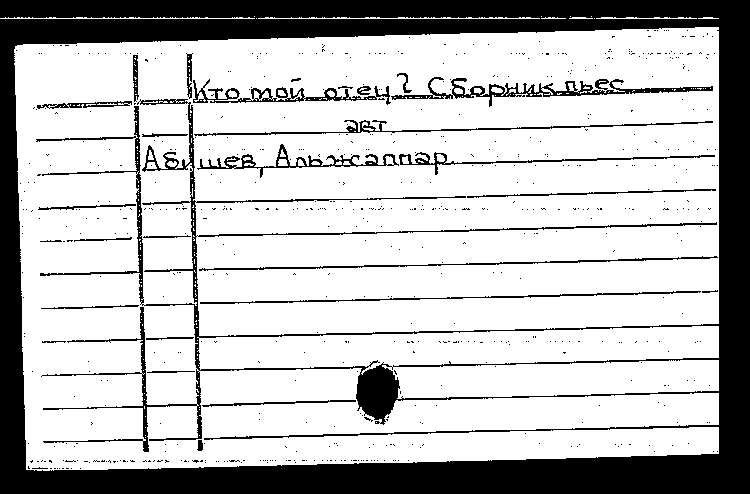 Кто мой отец? Сборник пьес
авт
Абишев, Альжаппар